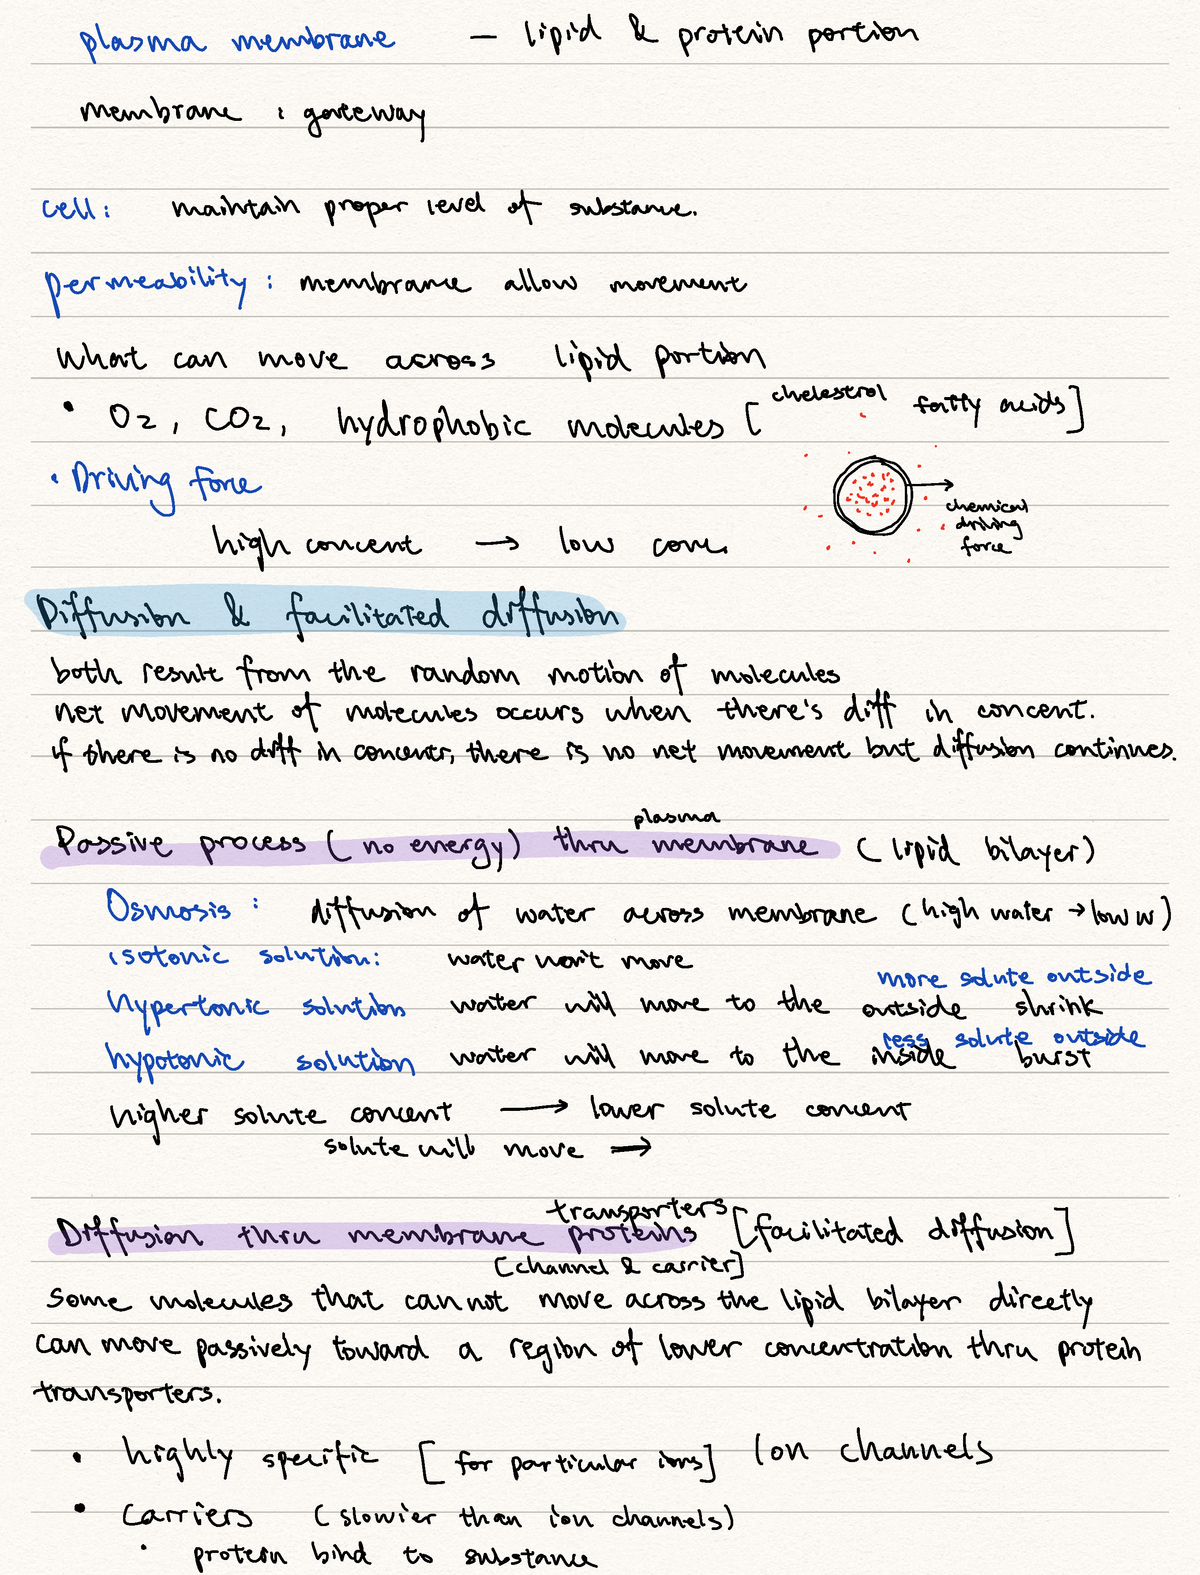 plasma membrane — lipid & protein portion
membrane : gateway
cell: maintain proper level of substance.
permeability : membrance allow movement
What can move across lipid portion
• O2, CO2, hydrophobic molecules [ chelestrol fatty acids]
• Driving force
chemical
driving
force
high concent → low conc.
Diffusion & facilitated diffusion
both result from the random motion of molecules
net movement of molecules occurs when there's diff in concent.
if there is no diff in concentr, there is no net movement but diffusion continues.
plasma
Passive process ( no energy) thru membrane ( lipid bilayer)
Osmosis : diffusion of water across membrane (high water → low w)
isotonic solution: water won't move
more solute outside
hypertonic solution water will move to the outside shrink
less solute outside
hypotonic solution water will move to the inside burst
higher solute concent → lower solute concent
solute will move →
transporters
Diffusion thru membrane proteins [facilitated diffusion]
[channel & carrier]
Some molecules that cannot move across the lipid bilayer directly
can move passively toward a region of lower concentration thru protein
transporters.
• highly specific [ for particular ions] Ion channels
• Carriers (slowier than ion channels)
• protein bind to substance